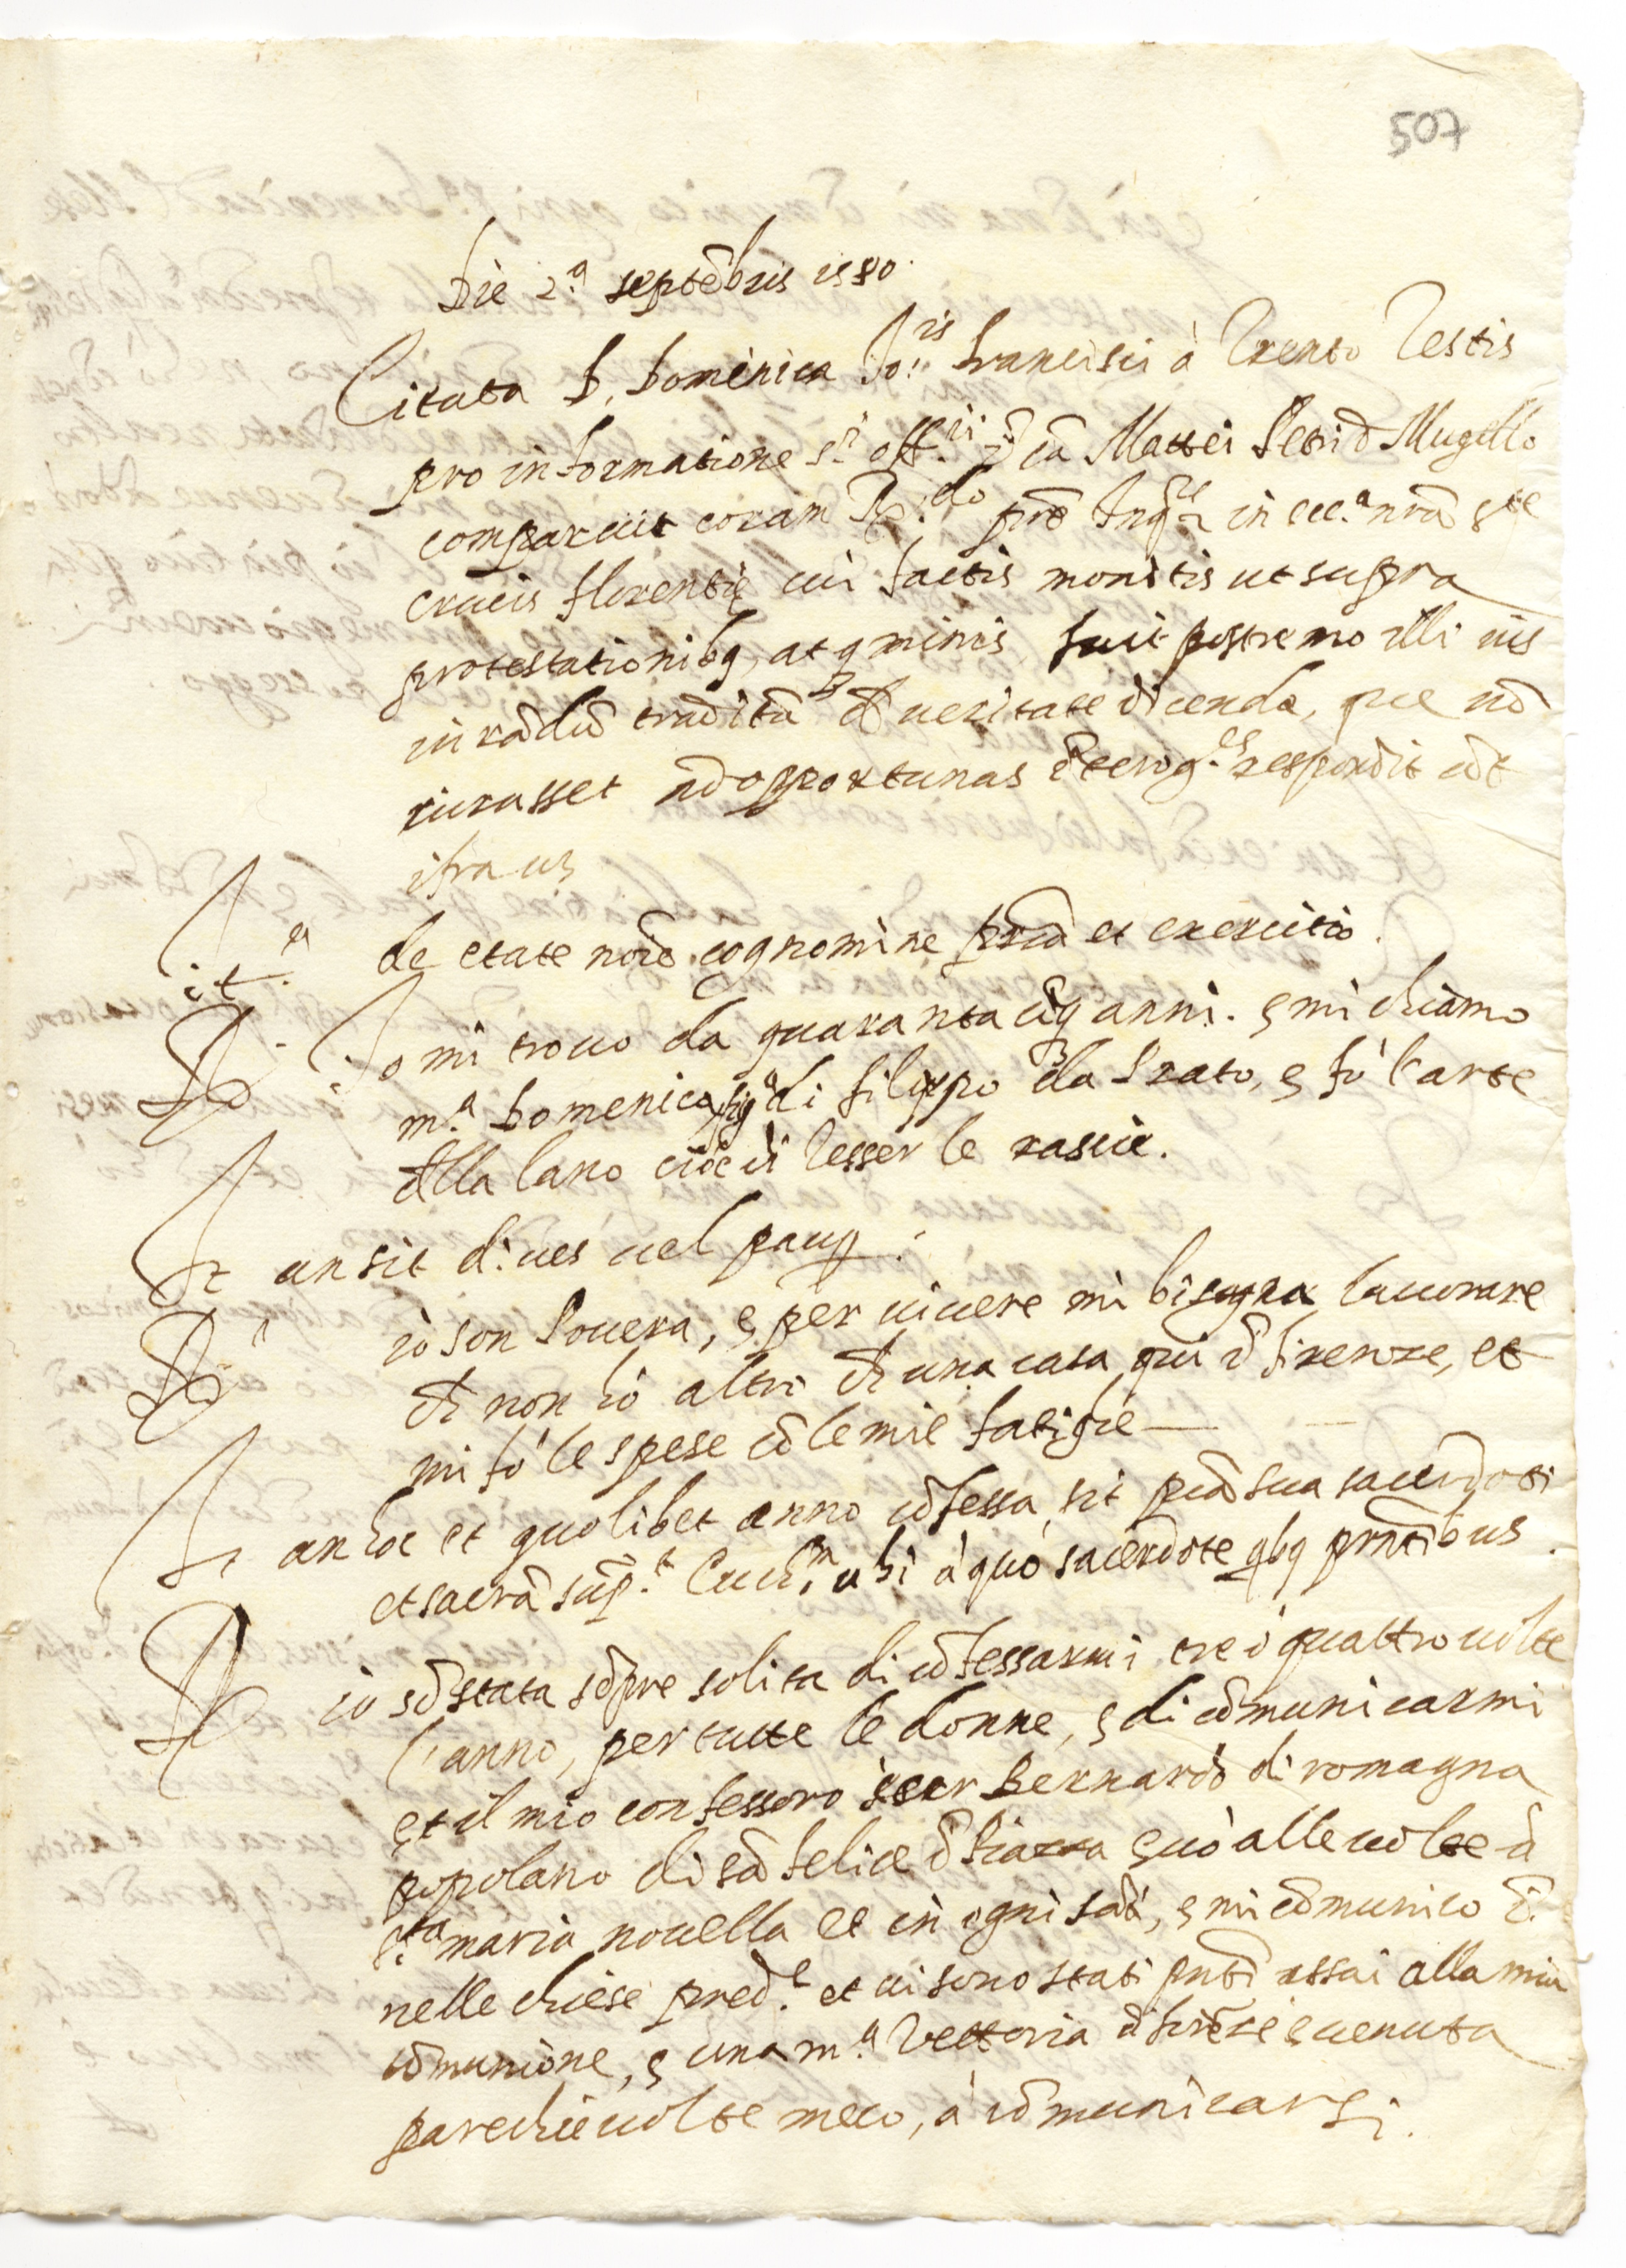 507
Die 2.ª septẽbris 1580.
Citata D. Domenica Jo:is francisci à Trento Testis
pro informatione S.ti off.ii ĩ cã Mattei Petri d Mugello
comparuit coram R.do prẽ Inq.re in ecc.a nrã S.te
crucis florentię cui factis monitis ut supra
protestationibq, atq minis fuit postremo illi ius
iurãdũ traditũ d ueritate dicenda, que cũ
iurasset ad opportunas ĩterog.es respondit ut
ifra uz
It.a de etate nõie cognomine prĩa et exercitio.
R. Io mi trouo da quaranta cĩq anni. e mi chiamo
m.a Domenica fig.a di filippo da Prato, e fò l'arte
della lano cioè di Tesser le rascie.
It an sit diues uel paup.
R. io son Pouera, e per uiuere mi bisogna lauorare
et non hò altro ch una casa qui ĩ firenze, et
mi fò le spese cõ le mie fatighe
It an hoc et quolibet anno cõfessa sit pctã sua sacerdoti
et sacrã sũp.t Euch.m ubi à quò sacerdote qbq prntibus.
R. io sõ stata sẽpre solita di cõfessarmi tre ò quattro uolte
l'anno, per tutte le donne, e di cõmunicarmi
et il mio confessoro è ser Bernardo di romagna
popolano di sã felice ĩ Piazza e uò alle uolte à
S.ta maria nouella et in ogni sãti, e mi cõmunico ĩ
nelle chiese pred.e et ui sono stati pntĩ assai alla mia
cõmunione, e una m.a Vettoria ĩ firẽze è uenuta
parechie uolte meco, à cõmunicarsi.